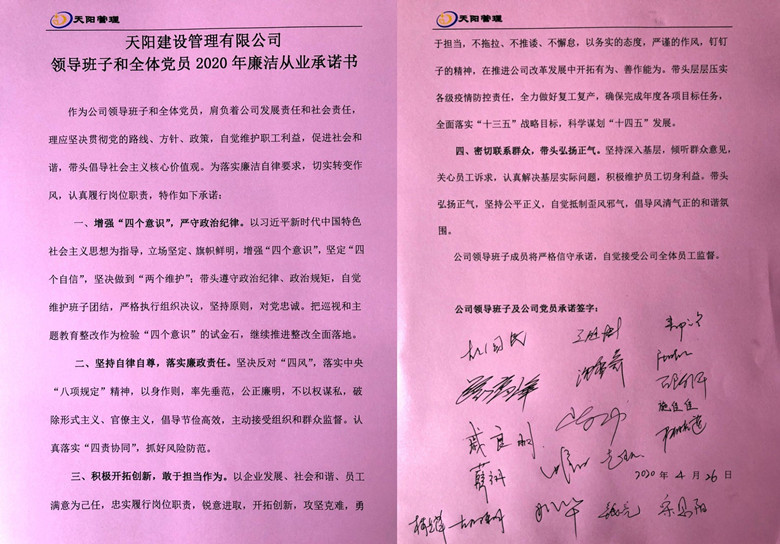 天阳管理
天阳建设管理有限公司
领导班子和全体党员 2020 年廉洁从业承诺书
作为公司领导班子和全体党员，肩负着公司发展责任和社会责任，
理应坚决贯彻党的路线、方针、政策，自觉维护职工利益，促进社会和
谐，带头倡导社会主义核心价值观。为落实廉洁自律要求，切实转变作
风，认真履行岗位职责，特作如下承诺：
一、增强“四个意识”，严守政治纪律。以习近平新时代中国特色
社会主义思想为指导，立场坚定、旗帜鲜明，增强“四个意识”，坚定“四
个自信”，坚决做到“两个维护”；带头遵守政治纪律、政治规矩，自觉
维护班子团结，严格执行组织决议，坚持原则，对党忠诚。把巡视和主
题教育整改作为检验“四个意识”的试金石，继续推进整改全面落地。
二、坚持自律自尊，落实廉政责任。坚决反对“四风”，落实中央
“八项规定”精神，以身作则，率先垂范，公正廉明，不以权谋私，破
除形式主义、官僚主义，倡导节俭高效，主动接受组织和群众监督。认
真落实“四责协同”，抓好风险防范。
三、积极开拓创新，敢于担当作为。以企业发展、社会和谐、员工
满意为己任，忠实履行岗位职责，锐意进取，开拓创新，攻坚克难，勇
天阳管理
于担当，不拖拉、不推诿、不懈怠，以务实的态度，严谨的作风，钉钉
子的精神，在推进公司改革发展中开拓有为、善作能为。带头层层压实
各级疫情防控责任，全力做好复工复产，确保完成年度各项目标任务，
全面落实“十三五”战略目标，科学谋划“十四五”发展。
四、密切联系群众，带头弘扬正气。坚持深入基层，倾听群众意见，
关心员工诉求，认真解决基层实际问题，积极维护员工切身利益，带头
弘扬正气，坚持公平正义，自觉抵制歪风邪气，倡导风清气正的和谐氛
围。
公司领导班子成员将严格信守承诺，自觉接受公司全体员工监督。
公司领导班子及公司党员承诺签字：
2020 年 4 月 26 日